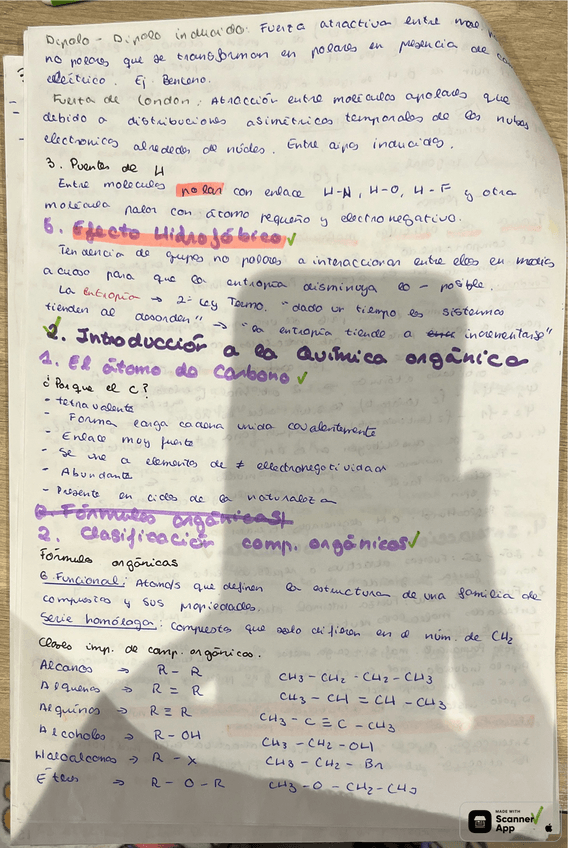 Dipolo - Dipolo inducido: Fuerza atractiva entre
no polares que se transforman en polares en presencia de
eléctrico. Ej: Benceno.
Fuerza de London: Atracción entre moléculas apolares que
debido a distribuciones asimétricas temporales de las nubes
electrónicas alrededor de núcleos. Entre dipos inducidos.
3. Puentes de H
Entre moléculas polar con enlace H-N, H-O, H-F y otra
molécula polar con átomo pequeño y electronegativo.
6. Efecto Hidrofóbico ✓
Tendencia de grupos no polares a interaccionar entre ellos en medios
acuoso para que la entropía disminuya lo - posible.
La entropía → 2ª Ley Termo. "dado un tiempo los sistemas
tienden al desorden" → "la entropía tiende a incrementarse"
2. Introducción a la Química orgánica
1. El átomo de Carbono ✓
¿Por que el C?
- tetravalente
- Forma larga cadena unida covalentemente
- Enlace muy fuerte
- Se une a elementos de ≠ electronegatividad
- Abundante
- Presente en ciclos de la naturaleza
2. Fórmulas orgánicas
2. Clasificación comp. orgánicos ✓
Fórmulas orgánicas
G. Funcional: Atomo/s que definen la estructura de una familia de
compuestos y sus propiedades.
Serie homóloga: Compuestos que solo difieren en el núm. de CH2
Clases imp. de comp. orgánicos.
Alcanos → R - R CH3 - CH2 - CH2 - CH3
Alquenos → R = R CH3 - CH = CH - CH3
Alquinos → R ≡ R CH3 - C ≡ C - CH3
Alcoholes → R - OH CH3 - CH2 - OH
Haloalcanos → R - X CH3 - CH2 - Br
Éteres → R - O - R CH3 - O - CH2 - CH3
MADE WITH
Scanner
App